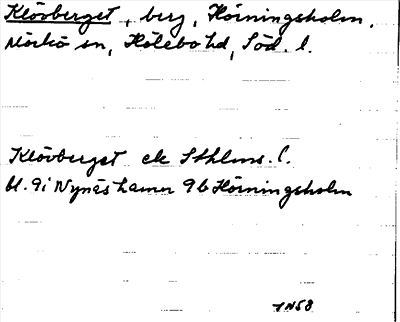 Klövberget, berg, Hörningsholm,
Mörkö sn, Hölebo hd, Söd. l.
Klövberget ek Sthlms. l.
bl. 9i Nynäshamn 9b Hörningsholm
1N58